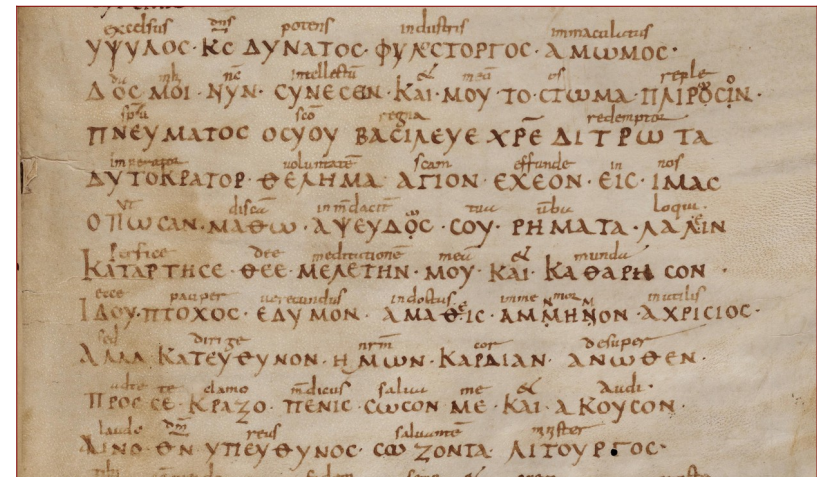 excelsus dn̄s potens industris immaculatus
ΥΨΥΛΟC· Κ̄C ΔΥΝΑΤΟC· ΦΥΛΕCΤΟΡΓΟC· ΑΜѠΜΟC·
da mihi nc̄ intellectū & meū os reple
ΔΟC ΜΟΙ· ΝΥΝ· CΥΝΕCΕΝ· ΚΑΙ· ΜΟΥ· ΤΟ· CΤѠΜΑ·
sp̄u sc̄o regna redemptor
ΠΝΕΥΜΑΤΟC ΟCΥΟΥ ΒΑCΙΛΕΥΕ ΧΡ̄Ε ΔΙΤΡѠΤΑ
imperator voluntatē sc̄am effunde in nos
ΑΥΤΟΚΡΑΤΟΡ· ΘΕΛΗΜΑ· ΑΓΙΟΝ· ΕΧΕΟΝ· ΕΙC· ΙΜΑC
ut discā tua uerba loqui
ΟΠѠCΑΝ· ΜΑΘѠ· ΑΨΕΥΔΟC· CΟΥ· ΡΗΜΑΤΑ· ΛΑΛΕΙΝ
Perfice meditationē meā & munda
ΚΑΤΑΡΤΗCΕ· ΘΕΕ· ΜΕΛΕΤΗΝ· ΜΟΥ· ΚΑΙ· ΚΑΘΑΡΗCΟΝ·
ecce pauper uerecundus indoctus inutilis
ΙΔΟΥ· ΠΤΟΧΟC· ΕΔΥΜΟΝ· ΑΜΑΘΕΙC· ΑΜΜΗΝΟΝ· ΑΧΡΙCΙΟC·
sed dirige nr̄m cor desuper
ΑΛΛΑ ΚΑΤΕΥΘΥΝΟΝ· ΗΜѠΝ· ΚΑΡΔΙΑΝ· ΑΝѠΘΕΝ·
te clamo salua me & audi·
ΠΡΟC CΕ· ΚΡΑΖΟ· ΠΕΝΙC· CѠCΟΝ ΜΕ· ΚΑΙ· ΑΚΟΥCΟΝ·
laudo dm̄ reus saluantē
ΑΙΝΟ· Θ̄Ν ΥΠΕΥΘΥΝΟC· CѠΖΟΝΤΑ· ΛΙΤΟΥΡΓΟC·